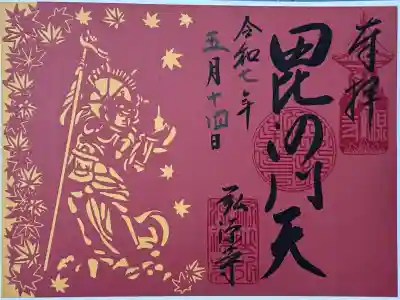 奉拝
毘沙門天
令和七年
五月十四日